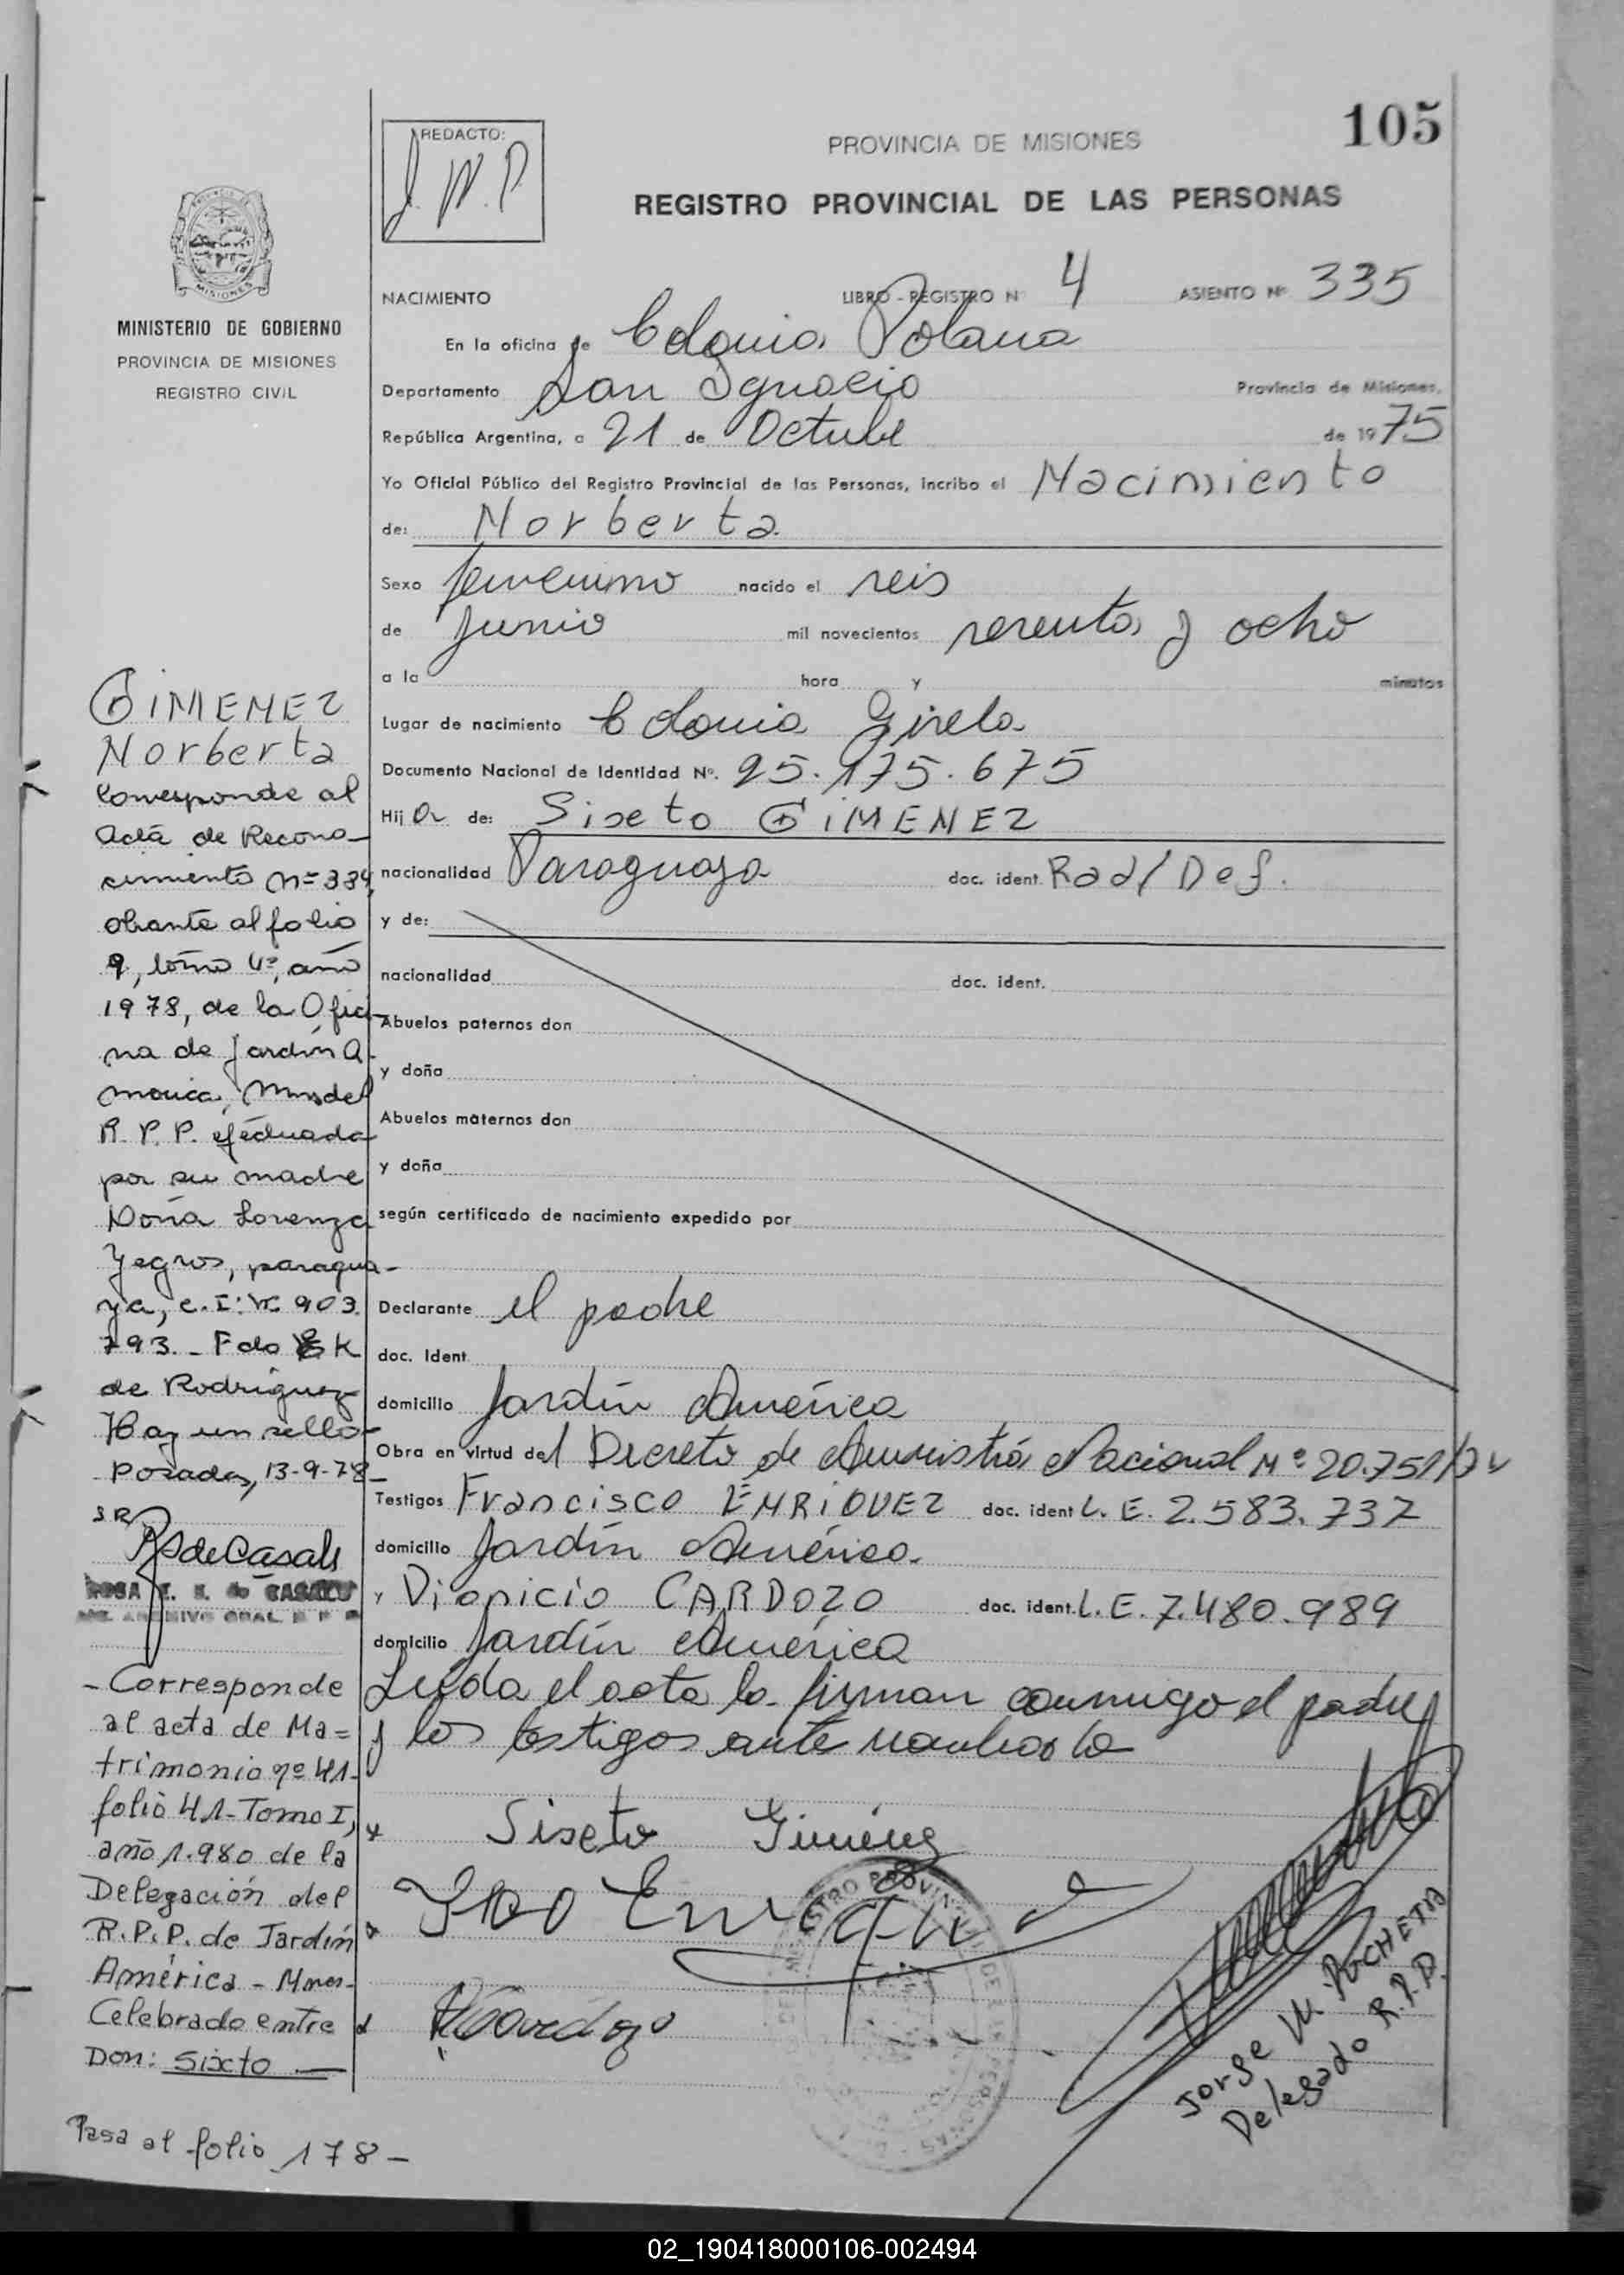 105
REDACTO:
J. W. P.
PROVINCIA DE MISIONES
REGISTRO PROVINCIAL DE LAS PERSONAS
MISIONES
MINISTERIO DE GOBIERNO
PROVINCIA DE MISIONES
REGISTRO CIVIL
NACIMIENTO LIBRO - REGISTRO Nº 4 ASIENTO Nº 335
En la oficina de Colonia Polana
Departamento San Ignacio Provincia de Misiones,
República Argentina, a 21 de Octubre de 1975
Yo Oficial Público del Registro Provincial de las Personas, incribo el Nacimiento
de: Norberta
Sexo femenino nacido el seis
de Junio mil novecientos sesenta y ocho
a la hora y minutos
Lugar de nacimiento Colonia Gisela
Documento Nacional de Identidad Nº. 25.175.675
Hija de: Sixeto GIMENEZ
nacionalidad Paraguaya doc. ident. Rad/Def.
y de:
nacionalidad doc. ident.
Abuelos paternos don
y doña
Abuelos maternos don
y doña
según certificado de nacimiento expedido por
Declarante el padre
doc. Ident
domicilio Jardín América
Obra en virtud del Decreto de Amnistía Nacional Nº 20.751/74
Testigos Francisco ENRIQUEZ doc. ident L. E. 2.583.737
domicilio Jardín América.
y Dionicio CARDOZO doc. ident. L. E. 7.480.989
domicilio Jardín América
Leída el acta la firman conmigo el padre
y los testigos ante nombrado
Sixeto Giménez
Jorge W. ARCHETTI
Delegado R.P.P.
GIMENEZ
Norberta
Corresponde al
acta de Recono-
cimiento nº 334,
obrante al folio
9, tomo 4º, año
1978, de la Ofici-
na de Jardín A-
merica, Mnes del
R. P. P. efectuada
por su madre
Doña Lorenza
Yegros, paragua-
ya, c. I: Nº 903.
793. - Fdo K
de Rodriguez
Hay un sello-
Posadas, 13-9-78-
S R
RSdeCasals
ROSA E. K. de CASALS
ARCHIVO GRAL. R P P
- Corresponde
al acta de Ma=
trimonio nº 41-
folio 41-Tomo I,
año 1.980 de la
Delegación del
R.P.P. de Jardín
América - Mnes-
Celebrado entre
Don: Sixto —
Pasa al folio 178 -
02_190418000106-002494